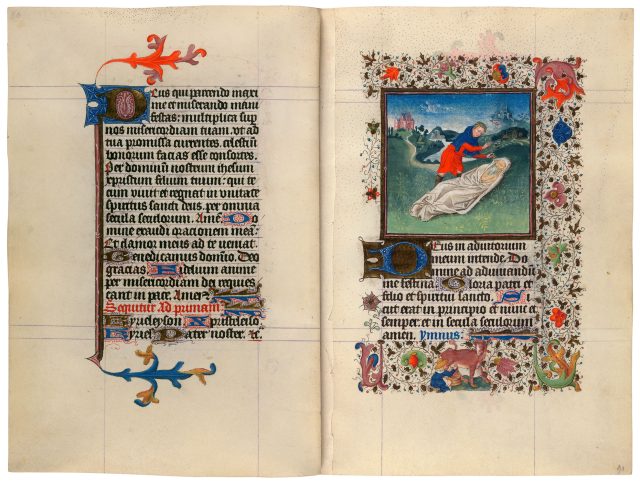 Deus qui parcendo maxi
me et miserando mani
festas: multiplica sup
nos misericordiam tuam. ut ad
tua promissa currentes. celestiū
bonorum facias esse consortes.
Per dominum nostrum ihesum
xpristum filium tuum: qui te
cum vivit et regnat in unitate
spiritus sancti deus. per omnia
secula seculorum. Amē. Do
mine exaudi oracionem meā:
Et clamor meus ad te ueniat.
Benedicamus domino. Deo
gracias. Fidelium anime
per misericordiam dei requies
cant in pace. Amen
Sequitur Ad primam
Kyrieleyson Xpristeleiso
Kyriel Pater noster. &c.
Deus in adiutorium
meum intende. Do
mine ad adiuvandū
me festina Gloria patri et
filio et spiritui sancto. Si
cut erat in principio et nunc et
semper. et in secula seculorum
amen. Ymnus: